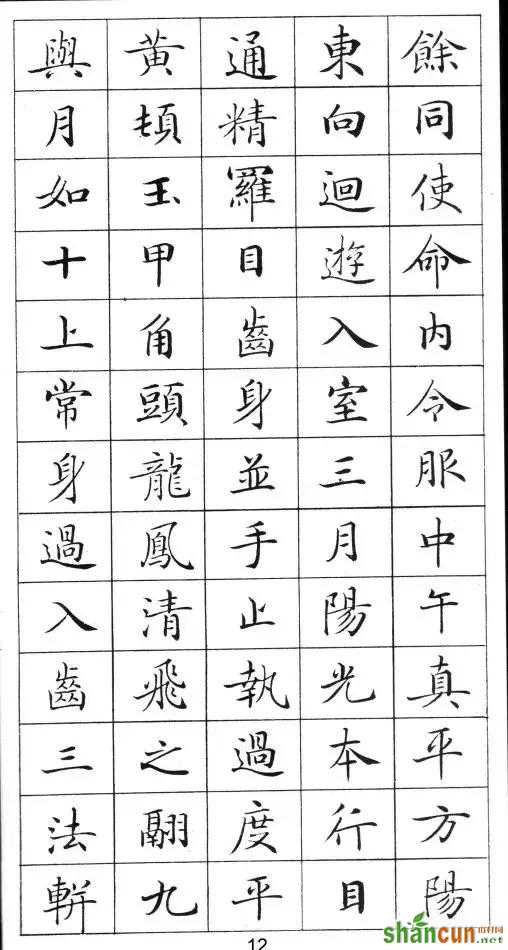 餘同使命内令服中午真平方陽
東向迴遊入室三月陽光本行目
通精羅目齒身並手止執過度平
黄頓玉甲角頭龍鳳清飛之翮九
與月如十上常身過入齒三法軿
12
shancun
.net